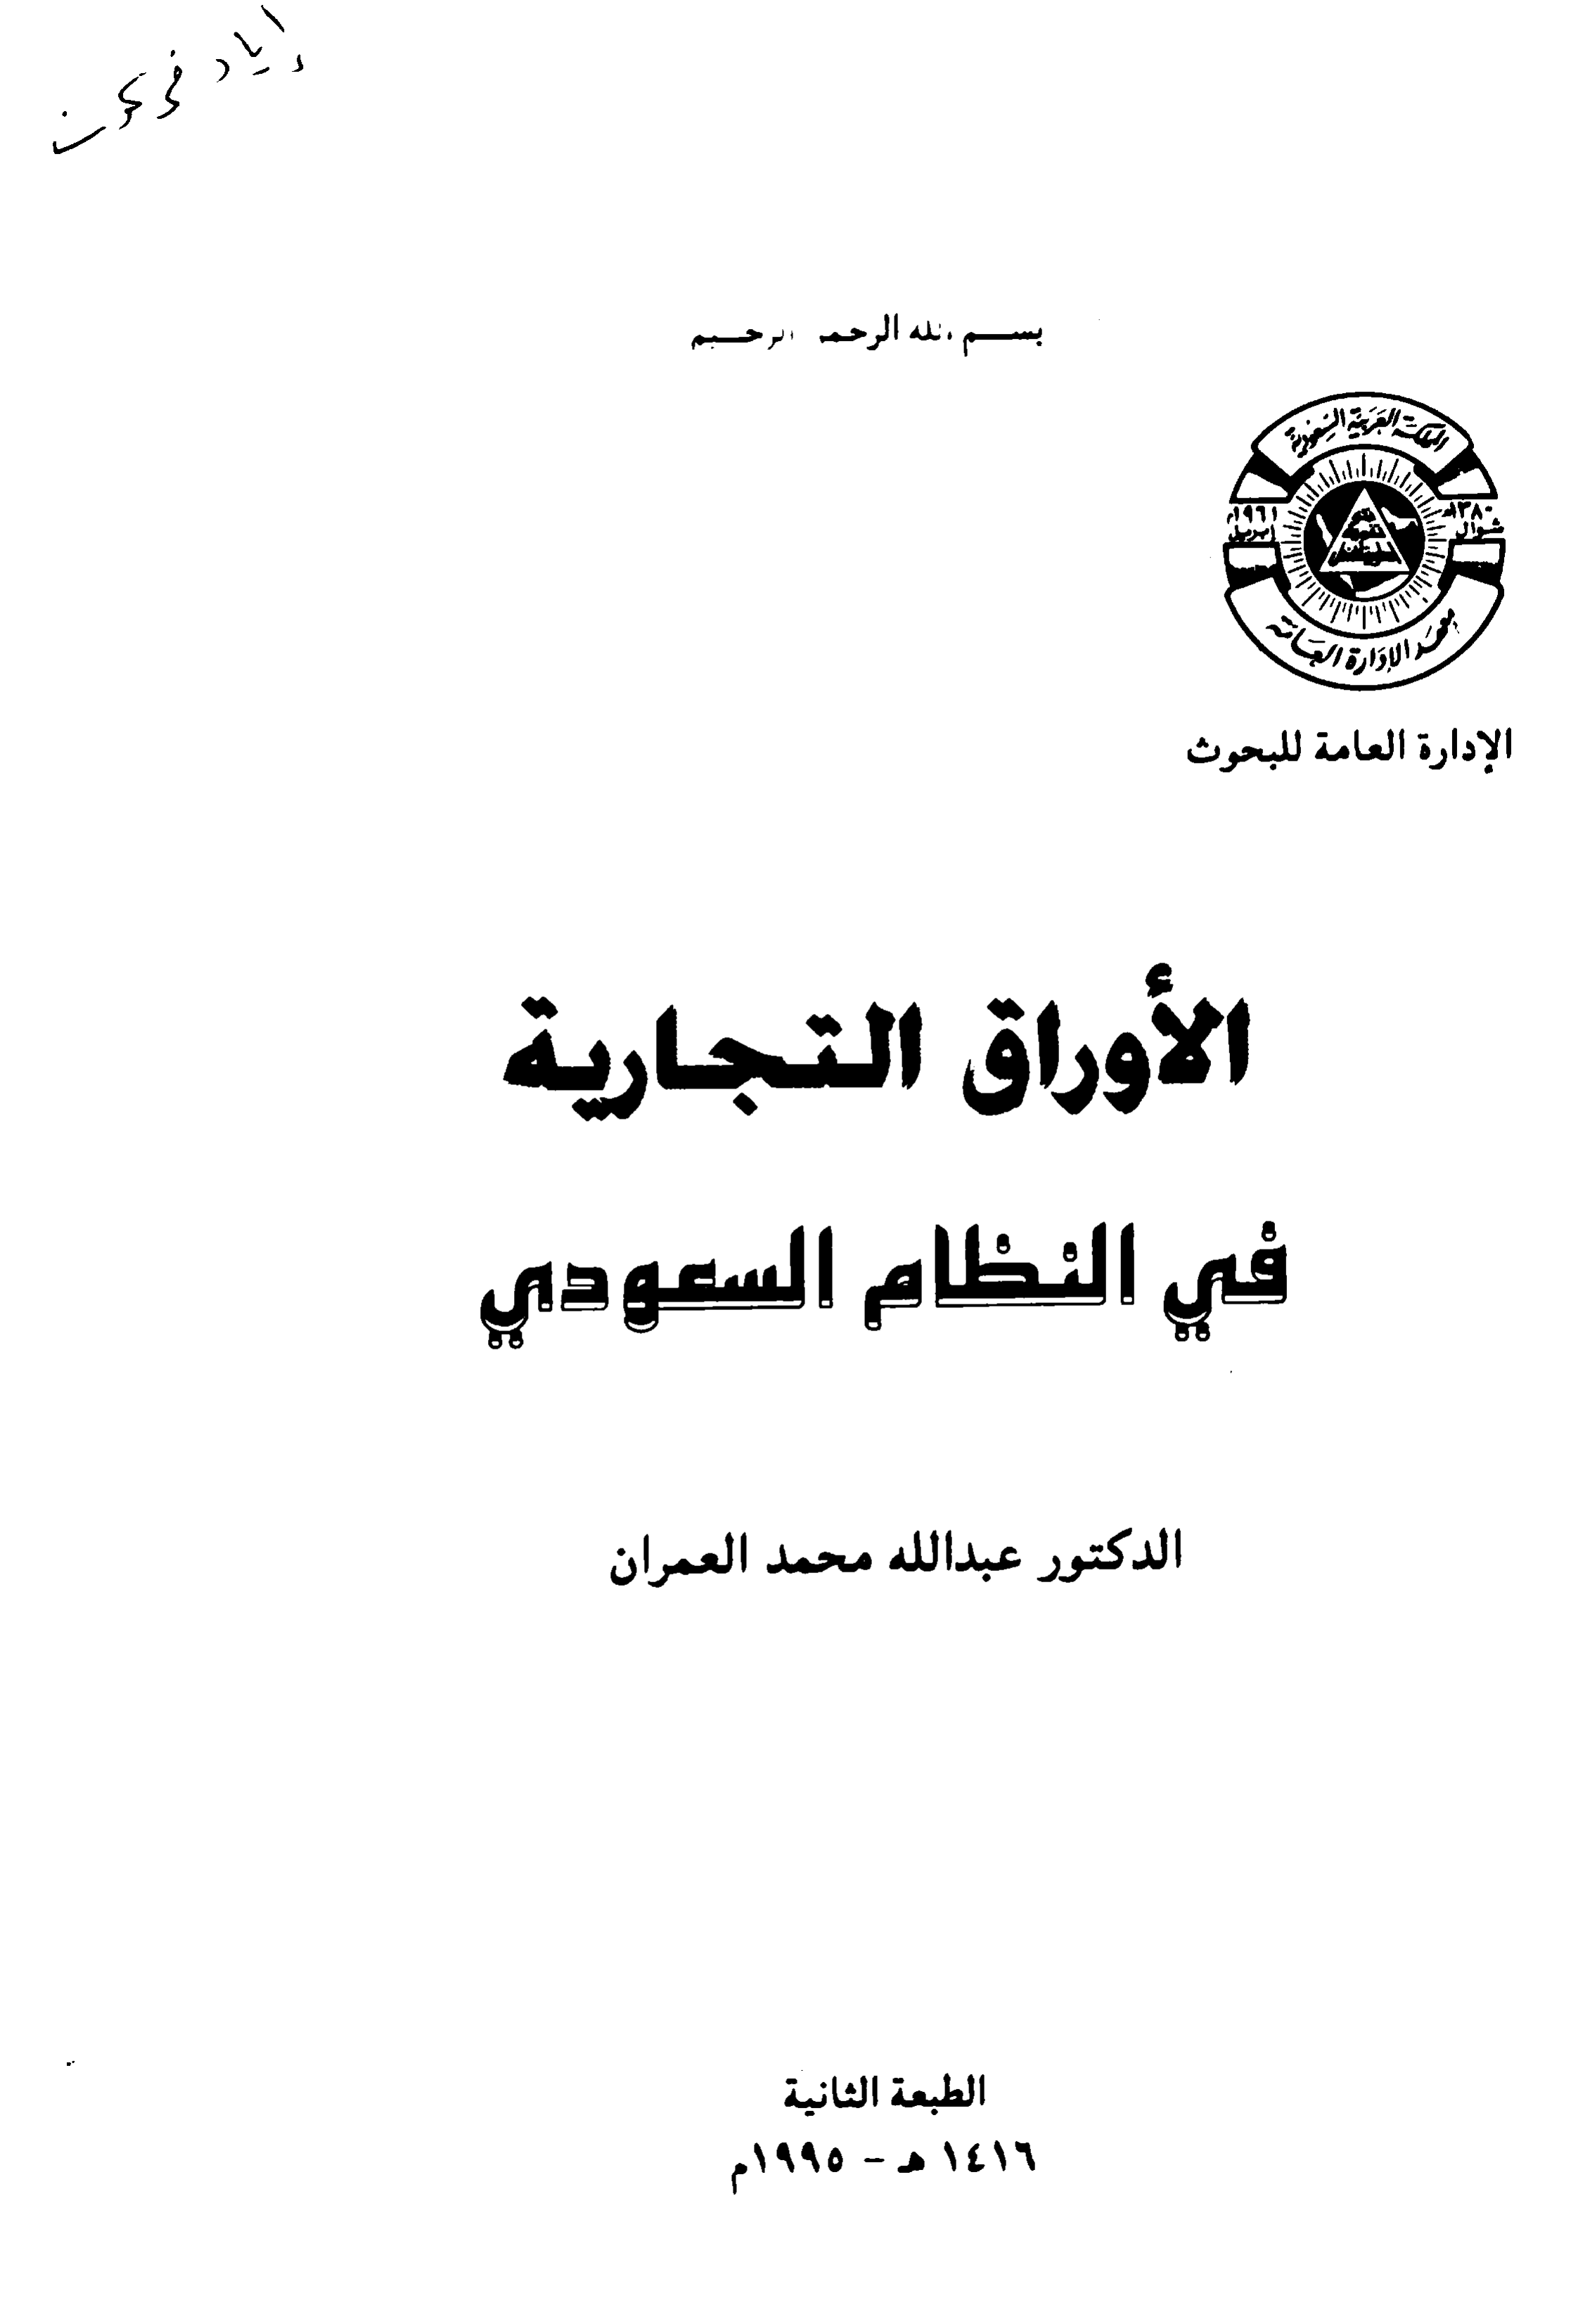 بسم الله الرحمن الرحيم
المملكة العربية السعودية
١٣٨٠هـ
شوال
١٩٦١م
ابريل
معهد الإدارة العامة
الإدارة العامة للبحوث
الأوراق التجارية
في النظام السعودي
الدكتور عبدالله محمد العمران
الطبعة الثانية
١٤١٦ هـ – ١٩٩٥م